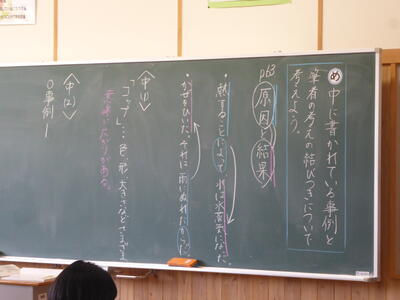 め 中に書かれている事例と
筆者の考えの結びつきについて
考えよう。
p63
原因と結果
・熱することによって、水は水蒸気になった。
・かぜをひいた。それは雨にぬれたからだ。
〈中(1)〉
「コップ」…色、形、大きさなどさまざま
広がりがある。
〈中(2)〉
○事例1